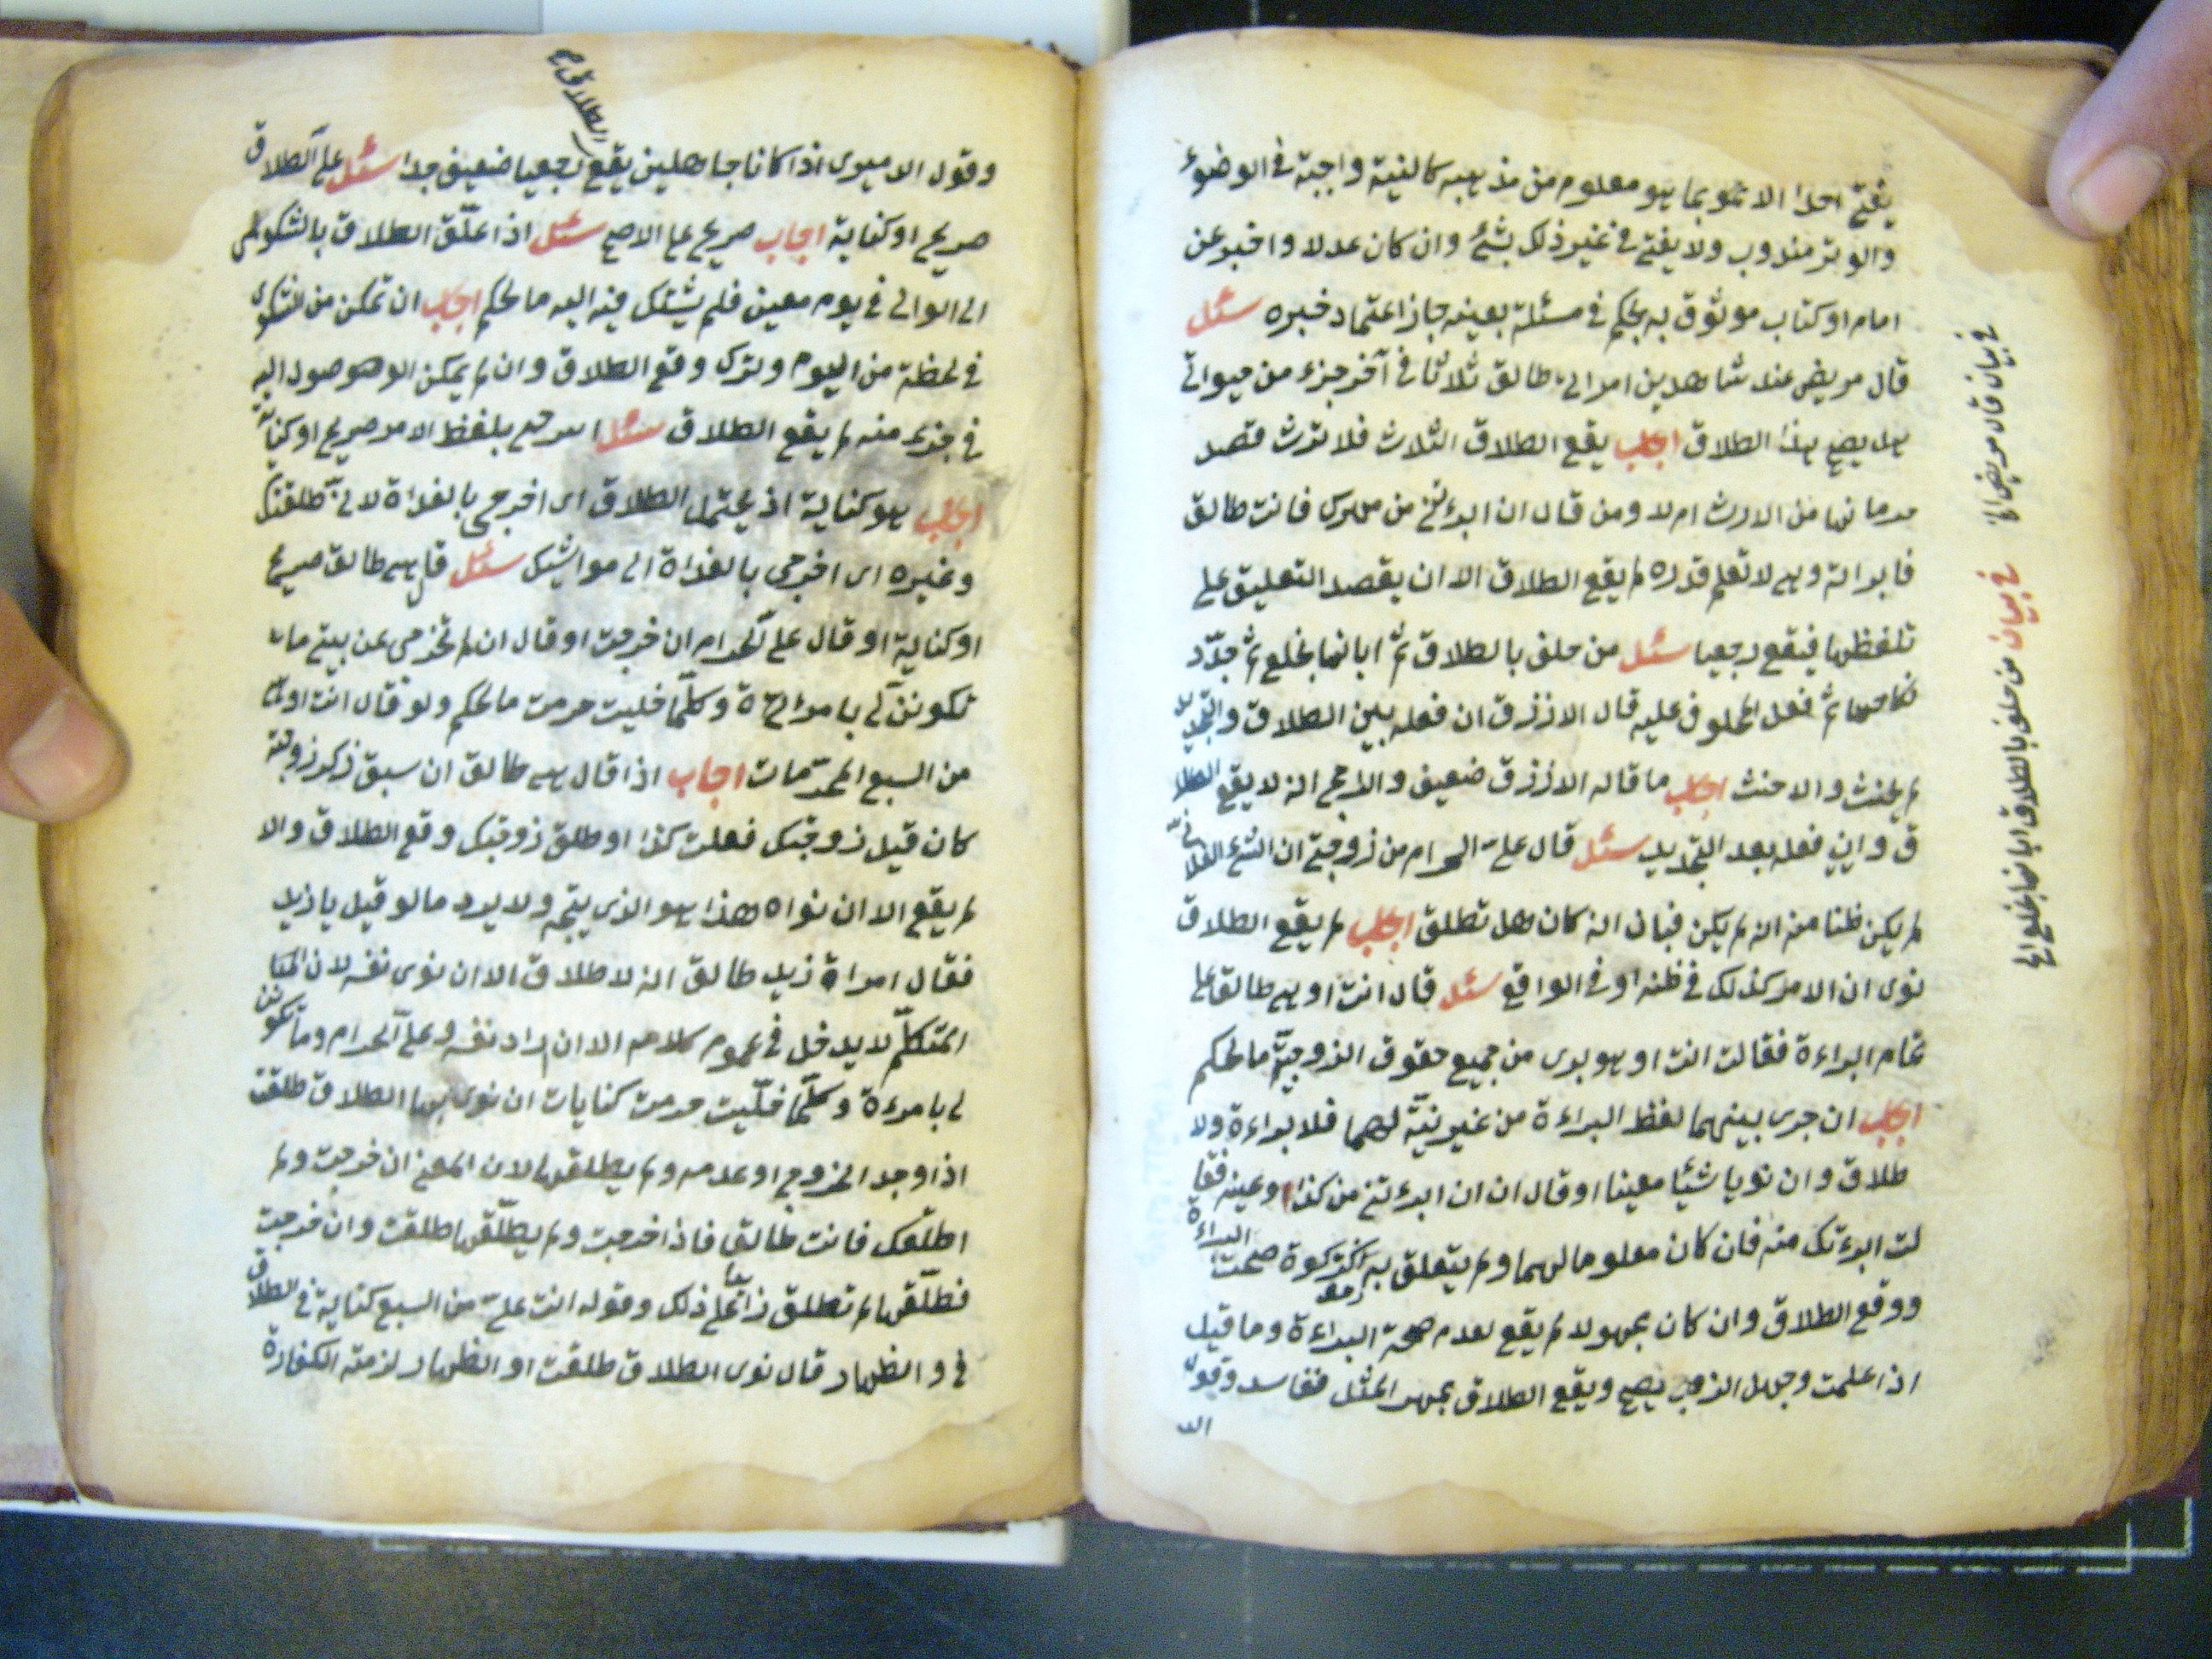 يفتي احدا الا نحو بما هو معلوم من مذهبه كالنية واجبة في الوضوء
والوتر مندوب ولا يفتي في غير ذلك بشئ وان كان عدلا واخبر عن
امام او كتاب موثوق به بحكم في مسئلة بعينه جاز اعتماد خبره سئل
قال مريض عند شاهدين امراتي طالق ثلاثا في آخر جزء من حيواتي
هل يصح هذا الطلاق اجاب يقع الطلاق الثلاث فلا ترث قصد
حرمانها من الارث ام لا ومن قال ان ابرءتني من مهرك فانت طالق
فابراته وهي لا تعلم قدره لم يقع الطلاق الا ان يقصد التعليق على
تلفظها فيقع رجعيا سئل من حلف بالطلاق ثم ابانها بخلع ثم جدّد
نكاحها ثم فعل المحلوف عليه قال الازرق ان فعله بين الطلاق والتجديد
لم يحنث والا حنث اجاب ما قاله الازرق ضعيف والارجح انه لا يقع الطلا
ق وان فعله بعد التجديد سئل قال علي الحرام من زوجتي ان الشئ الفلاني
لم يكن ظنا منه انه لم يكن فبان انه كان هل تطلق اجاب لم يقع الطلاق
نوى ان الامر كذلك في ظنه او في الواقع سئل قال انت او هي طالق على
تمام البراءة فقالت انت او هو برى من جميع حقوق الزوجيّة ما الحكم
اجاب ان جرى بينهما لفظ البراءة من غير نيّة لهما فلا براءة ولا
طلاق وان نويا شيئا معينا او قال ان ابرءتني من كذا وعينه فقا
لت ابرءتك منه فان كان معلوما لهما ولم يتعلق به زكوة صحت البراءة
ووقع الطلاق وان كان مجهولا لم يقع لعدم صحة البراءة وما قيل
اذا علمت وجهل الزوج يصح ويقع الطلاق بمهر المثل ففاسد وقول
الا
في بيان قال مريض الخ
في بيان من حلف بالطلاق ابانها بخلع الخ
الطلاق
وقول الاميوى اذا كانا جاهلين يقع رجعيا ضعيف جدا سئل علي الطلاق
صريح او كناية اجاب صريح على الاصح سئل اذا علّق الطلاق بالشكوى
الى الوالي في يوم معين فلم يشتك فيه اليه ما الحكم اجاب ان تمكن من الشكوى
في لحظة من اليوم وترك وقع الطلاق وان لم يمكن الوصول اليه
في جزء منه لم يقع الطلاق سئل اسرحى بلفظ الامر صريح او كناية
اجاب هو كناية اذ يحتمل الطلاق اى اخرجى بالغداة لاني طلقتك
وغيره اى اخرجى بالغداة الى مواشيك سئل قال هي طالق صريح
او كناية او قال علي الحرام ان خرجت او قال ان لم تخرجى عن بيتي ما
تكونن لي بامراءة وكلّما خليت حرمت ما الحكم ولو قال انت
من السبع المحرّمات اجاب اذا قال هي طالق ان سبق ذكر زوجته
كان قيل زوجتك فعلت كذا او طلق زوجتك وقع الطلاق والا
لم يقع الا ان نواه هذا هو الذى يتجه ولا يرد ما لو قيل يا زيد
فقال امراة زيد طالق انه لا طلاق الا ان نوى نفسه لان
المتكلّم لا يدخل في عموم كلامه الا ان اراد نفسه وعلي الحرام وما تكونن
لي بامرءة وكلّما خلّيت حرمت كنايات ان نوى بها الطلاق طلقت
اذا وجد الخروج او عدمه ولم يطلقها لان المعنى ان خرجت ولم
اطلقك فانت طالق فاذا خرجت ولم يطلّقها طلقت وان خرجت
فطلّقها لم تطلق زائدا على ذلك وقوله انت علي من السبع كناية في الطلاق
في و الظهار قال نوى الطلاق طلقت او الظهار لزمته الكفارة